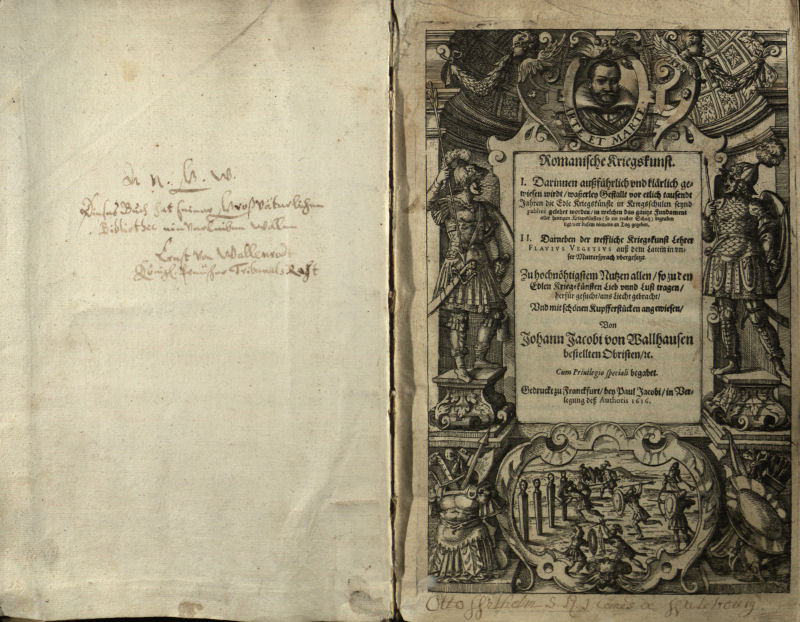 Dieses Buch hat seiner Großväterlichen
Bibliothec
Ernst von Wallenrodt
ARTE ET MARTE.
Romanische Kriegskunst.
I. Darinnen außführlich vnd klärlich ge-
wiesen wirdt / waßerley Gestallt vor etlich tausendt
Jahren die Edle Kriegskünste in Kriegsschulen seynd
gelehrt worden / in welchen das gantze Fundament
aller jetzigen Kriegskünsten /
II. Darneben der treffliche Kriegskunst Lehrer
FLAVIVS VEGETIVS auß dem Latein in vn-
ser Muttersprach vbergesetzt.
Zu hochnöhtigstem Nutzen allen / so zu den
Edlen Kriegskünsten Lieb vnnd Lust tragen /
herfür gesucht / ans Liecht gebracht /
Vnd mit schönen Kupfferstücken angewiesen /
Von
Johann Jacobi von Wallhausen
bestellten Obristen / ꝛc.
Cum Priuilegio speciali begabet.
Gedruckt zu Franckfurt / bey Paul Jacobi / in Ver-
legung deß Authoris 1616.
Otto Wilhelm S. R. I. Comes